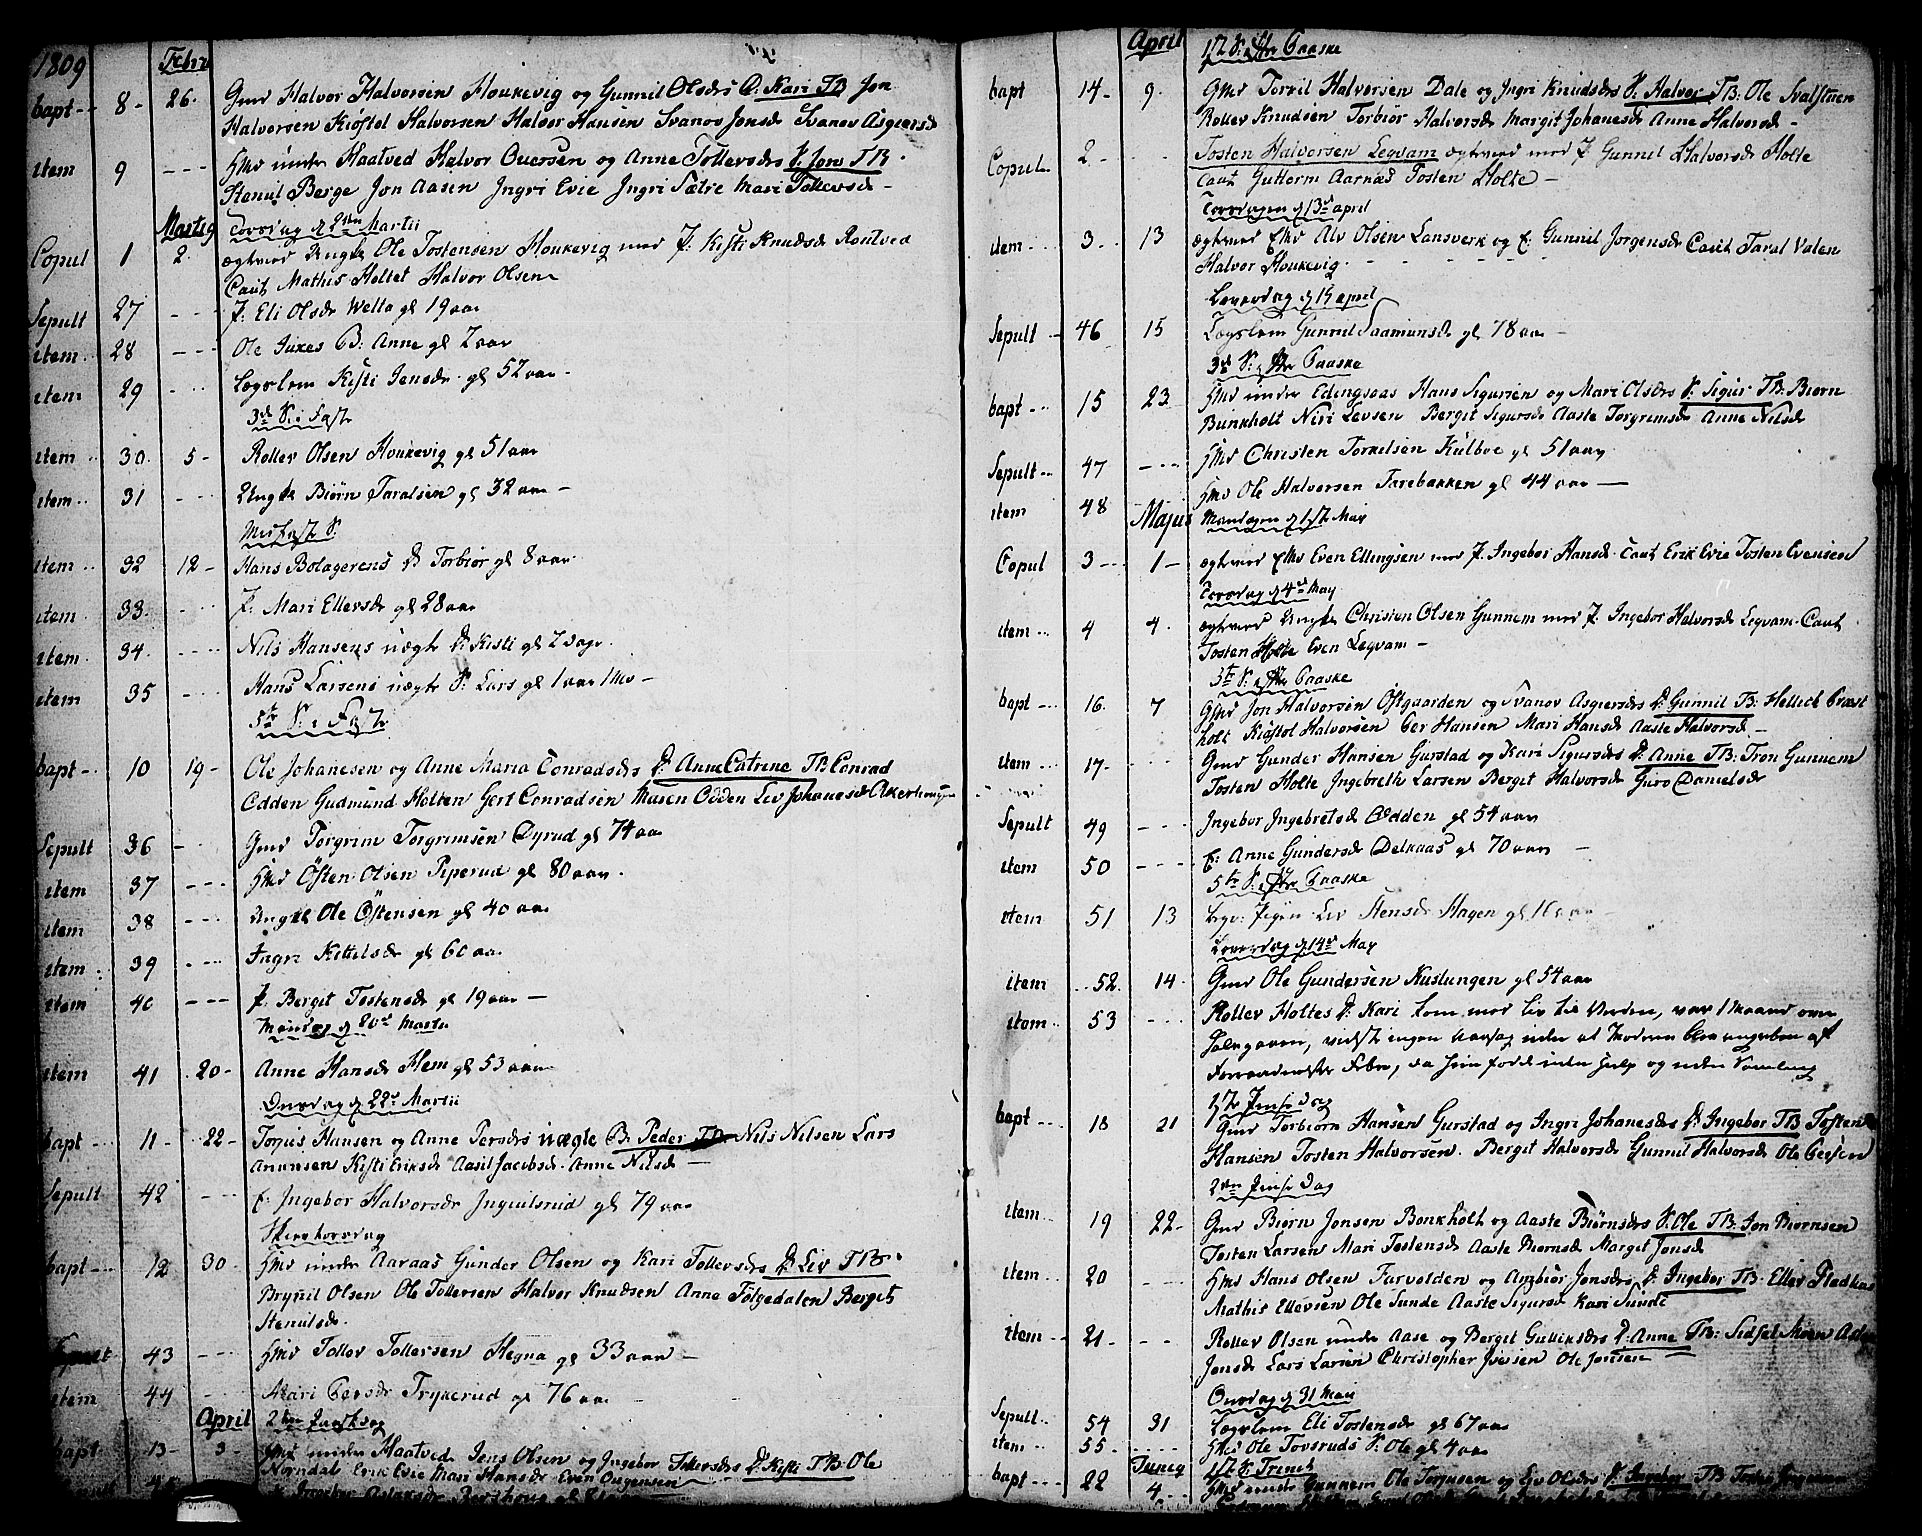 1809 Febr
bapt 8 - 26. Gmd Halvor Halvorsen Houkevig og Gunnil Olsdr D: Kari TB Jon
Halvorsen Kiøstel Halvorsen Halvor Hansen Svanov Jonsd Svanov Asgiersd
item 9 - - - Hmd under Haatved Halvor Ouersen og Anne Tollersdr S: Jon TB.
Stenul Berge Jon Aasen Ingri Evie Ingri Sætre Mari Tollersd -
Martig Torsdag d 2den Martii
Copul 1 2. ægteviet Ungk Ole Tostensen Houkevig med P: Kisti Knudsdr Rontved
Caut Mathis Holtet Halvor Olsen
Sepult 27 - - - P: Eli Olsdr Wella gl 19 aar
item 28 - - - Ole Juxes B: Anne gl 2 aar
item 29 - - - Lægslem Kisti Jensdr gl 52 aar.
3d S: i Faste
item 30. 5 - Rollev Olsen Houkevig gl 51 aar
item 31 - - - Ungk Biørn Taralsen gl 32 aar -
Midfaste S:
item 32 12 - Hans Bolagerens D Torbiør gl 8 aar
item 33. - - - P: Mari Ellersdr gl 28 aar
item 34. - - - Nils Hansens uægte D: Kisti gl 2 Dage.
item 35 - - - Hans Larsens uægte S: Lars gl 1 aar 1 Md -
5te S: i Faste
bapt 10 19 - Ole Johanesen og Anne Maria Conradsdr D: Anne Catrine TB Conrad
Odden Gudmund Holten Gert Conradsen Maren Odden Liv Johanesdr
Sepult 36 - Gmd Torgrim Torgrimsen Dyrud gl 74 aar
item 37 - - - Hmd Östen Olsen Piperud gl 80 aar.
item 38 - - - Ungk Ole Östensen gl 40 aar
item 39 - - - Ingri Kittilsdr gl 60 aar
item 40 - - - P: Bergit Tostensdr gl 19 aar -
Mandag d 20d Martii
item 41 20 - Anne Hansdr Hem gl 53 aar
Onsdag d 22d Martii
bapt 11 - 22 - Torjus Hansen og Anne Persdr uægte B: Peder TB Nils Nilsen Lars
Amunsen Kisti Eriksdr Aasil Jacobsd. Anne Nilsdr -
Sepult 42 - - - E: Ingebor Halvorsdr Inguilsrud gl 79 aar
Skiertorsdag
bapt 12 30 - Hmd under Aaraas Gunder Olsen og Kari Tollersdr D: Liv TB.
Brynil Olsen Ole Tollersen Halvor Knudsen Anne Følgedalen Bergit
Stenulsdr.
Sepult 43 - - - Hmd Tollov Tollersen Hegna gl 33 aar -
item 44 - - - Mari Persdr Trykerud gl 76 aar
April 2den Paaskedag
bapt 13 - 3 - Hmd under Haatved Jens Olsen og Ingebor Tollersdr D: Kisti TB: Ole
Norndal Erik Evie Mari Hansdr Even Ouersen
April 1ste S: efter Paaske
bapt 14 - 9. Gmd Torkil Halvorsen Dale og Ingri Knudsdr S: Halvor TB: Ole Svalstuen
Rollev Knudsen Torbiør Halvorsdr Margit Johanesdr Anne Halvorsdr -
Copul 2 - - - Tosten Halvorsen Leqvam ægteviet med P. Gunnil Halvorsdr Holte
Caut Guttorm Aarnæs Tosten Holte -
Torsdagen d 13d april
item 3. 13 ægteviet Emd Alv Olsen Lansverk og E: Gunnil Jorgensdr Caut Taral Valen
Halvor Houkevig.
Løverdag d 15 april
Sepult 46 15 Lægslem Gunnil Saamunsdr gl 78 aar -
3de S: efter Paaske
bapt 15 23. Hmd under Edingsaas Hans Sigursen og Mari Olsdr S: Sigur TB: Biørn
Bunkholt Niri Levsen Bergit Sigursdr Aaste Torgrimsdr Anne Nilsdr
Sepult 47 - - - Hmd Christen Torkelsen Kulboe gl 51 aar
item 48 Hmd Ole Halvorsen Tarebakken gl 44 aar -
Majus Mandagen d 1ste May
Copul 3 - 1 - ægteviet Emd Even Ellingsen med P. Ingebor Hansdr Caut Erik Evie Tosten Evensen
Torsdag d 4de May
item 4 4. ægteviet Ungk Christen Olsen Gunnem med P. Ingebor Halvorsdr Leqvam. Caut
Tosten Holte Even Leqvam -
5te S: efter Paaske
bapt 16. 7 Gmd Jon Halvorsen Östgaarden og Svanov Asgiersdr D: Gunnil TB: Hellich
holt Kiøstol Halvorsen Per Hansen Mari Hansd Aaste Halvorsd -
item 17 - - - Gmd Gunder Hansen Gurstad og Kari Sigursdr D: Anne TB: Tron Gunnem
Tosten Holte Ingebreth Larsen Bergit Halvorsdr Guro Danielsdr
Sepult 49 - - - Ingebor Ingebretsdr Odden gl 54 aar
item 50 - - - E: Anne Gundersdr Delkaas gl 70 aar -
5te S: efter Paaske
item 51 13 Pigen Liv Stensdr Hagen gl 16 aar -
Løverdag d 14d May
item 52. 14. Gmd Ole Gundersen Kuslungen gl 54 aar
item 53 - - - Rollev Holtes D: Kari kom med Liv til Verden, var 1 Maaned over
, vidste ingen aarsag uden at Moderen blev angreben af
Feber, da hun fødde uden Hielp og uden
1ste Pinse Dag
bapt 18 21 Gmd Torbiorn Hansen Gurstad og Ingri Johanesdr D: Ingebor TB Tosten
Hansen Tosten Halvorsen. Bergit Halvorsdr Gunnil Halvorsdr Ole Persen
2den Pinse Dag
item 19 22 - Gmd Biørn Jonsen Bonkholt og Aaste Biørnsdr S: Ole TB: Jon Biørnsen
Tosten Larsen Mari Tostensdr Aaste Biørnsdr Margit Jonsdr
item 20 - Hmd Hans Olsen Farvolden og Anbiør Jonsdr D. Ingebor TB: Ellev
Mathis Ellevsen Ole Sunde Aaste Sigursdr Kari Sunde
item 21 - - Rollev Olsen under Aase og Bergit Gulliksdr D: Anne TB: Sidsel Moen
Jonsdr Lars Larsen Christopher Iversen Ole Jonsen
Onsdag d 31 Mai
Sepult 54 31 Lægslem Eli Tostensdr gl 67 aar
item 55 - - - Hmd Ole Tovsruds S: Ole gl 4 aar
Junig 1ste S: Trinit
bapt 22 4 - Hmd under Gunnem Ole Torjusen og Liv Olsdr D: Ingebor TB Tosten